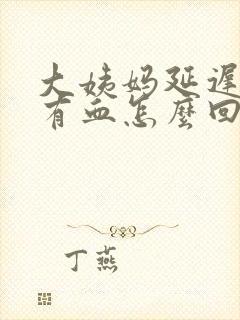 大姨妈延遲
有血怎麼回
丁燕